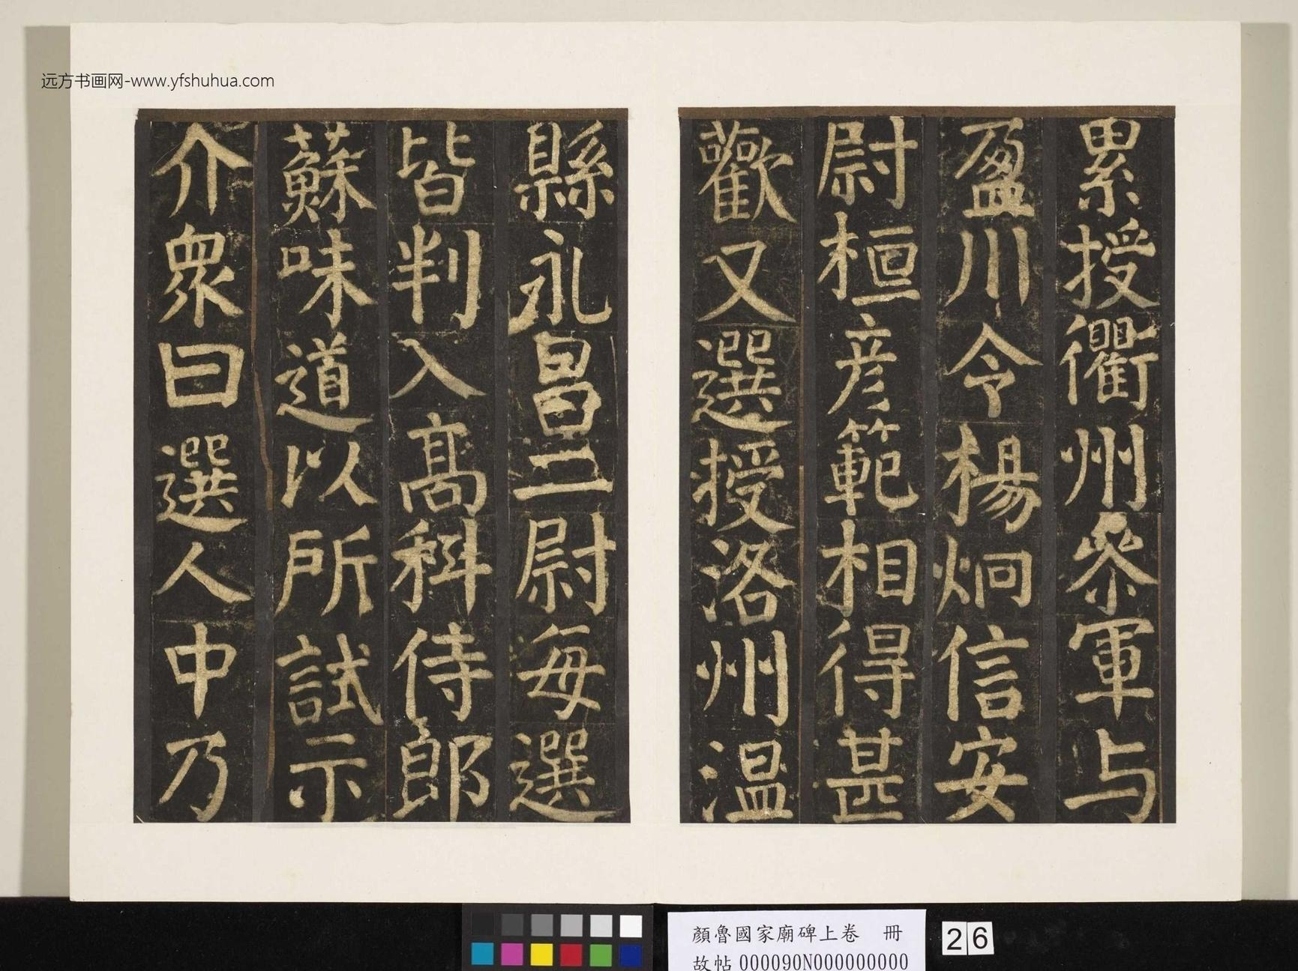 远方书画网-www.yfshuhua.com
累授衢州叅軍与
盈川令楊炯信安
尉桓彦範相得甚
歡又選授洛州温
縣永昌二尉每選
皆判入高科侍郎
蘇味道以所試示
介衆曰選人中乃
顏魯國家廟碑上卷 冊
故帖 000090N000000000
26